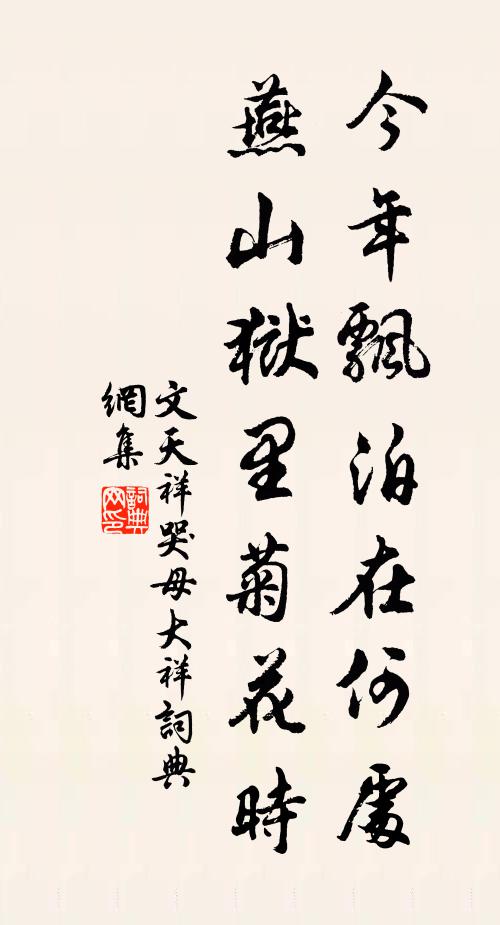 今年飄泊在何處
燕山獄里菊花時
文天祥哭母大祥詞典
網集
詞典
网印